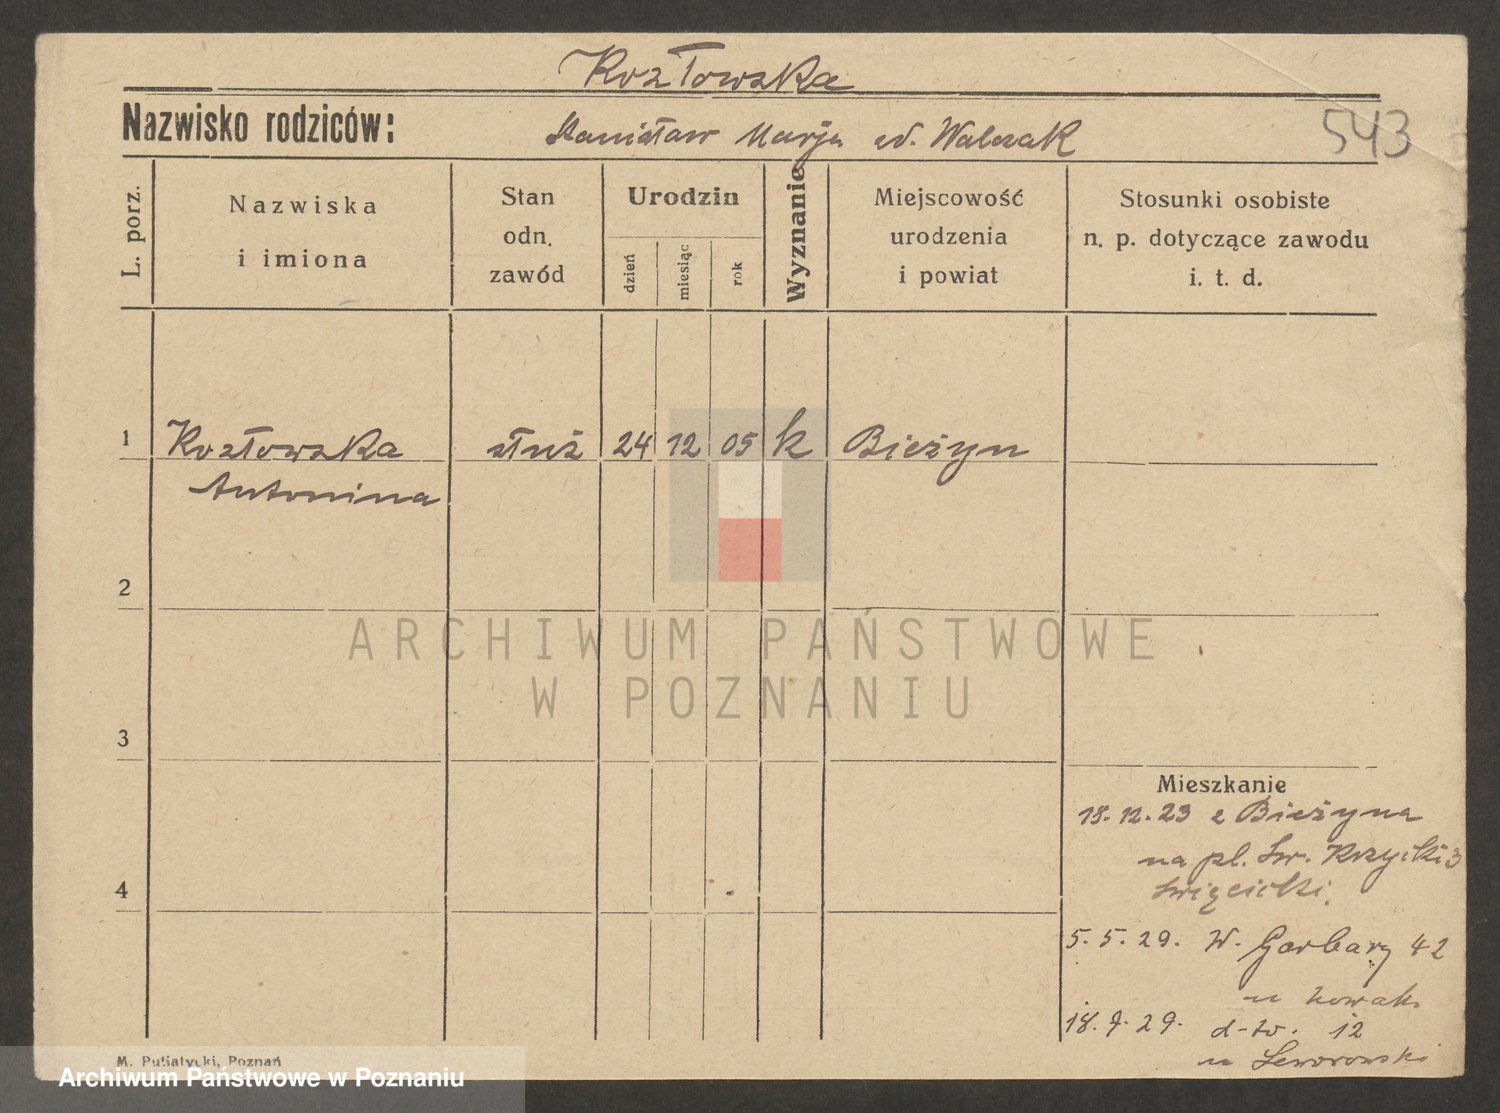 Kozłowska
Nazwisko rodziców:
Stanisław Marja zd. Walczak
543
L. porz.
Nazwiska
i imiona
Stan
odn.
zawód
Urodzin
dzień
miesiąc
rok
Wyznanie
Miejscowość
urodzenia
i powiat
Stosunki osobiste
n. p. dotyczące zawodu
i. t. d.
1
Kozłowska
służ
24
12
05
k
Bieżyn
Antonina
2
ARCHIWUM PAŃSTWOWE
W POZNANIU
3
Mieszkanie
18.12.23 z Bieżyna
na pl. Św. Krzyski 3
Święcicki.
4
5.5.29. W. Garbary 42
u Nowak.
18.7.29. d-to. 12
u
M. Putiatycki, Poznań
Archiwum Państwowe w Poznaniu